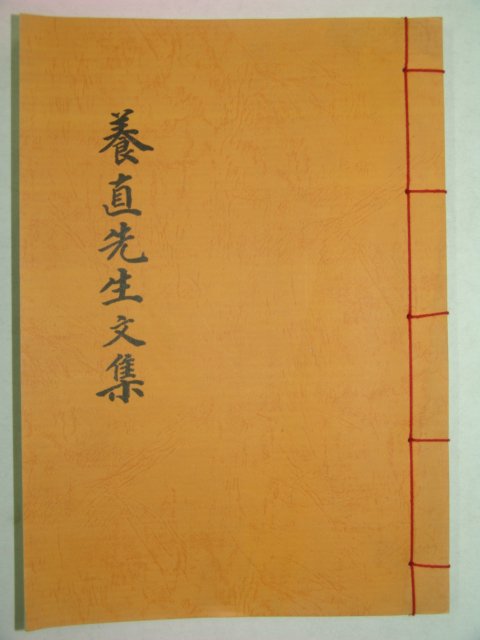 養直先生文集